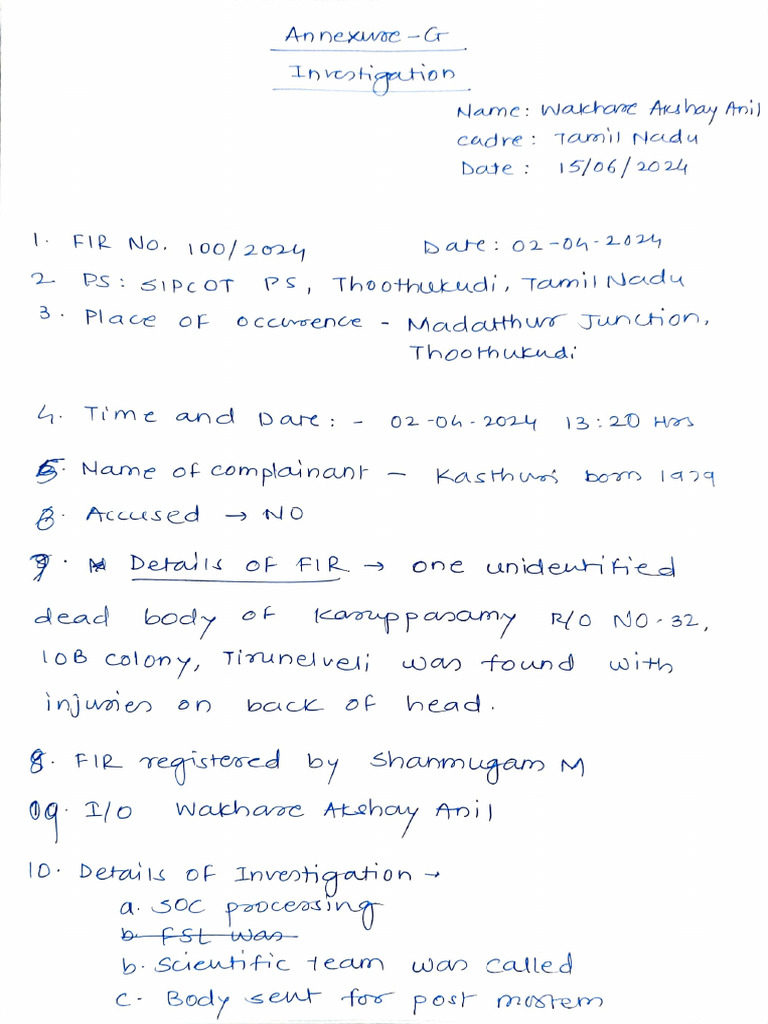 Annexure - G
Investigation
Name: Wakhare Akshay Anil
cadre: Tamil Nadu
Date: 15/06/2024
1. FIR No. 100/2024 Date: 02-04-2024
2 PS: SIPCOT PS, Thoothukudi, Tamil Nadu
3. Place of occurence - Madatthur Junction,
Thoothukudi
4. Time and Date: - 02-04-2024 13:20 Hrs
5. Name of complainant - Kasthuri born 1979
6. Accused → NO
7. Details of FIR → one unidentified
dead body of Karuppasamy R/O NO-32,
IOB colony, Tirunelveli was found with
injuries on back of head.
8. FIR registered by Shanmugam M
9. I/O Wakhare Akshay Anil
10. Details of Investigation →
a. SOC processing
b. FSL was
b. Scientific team was called
c. Body sent for post mortem